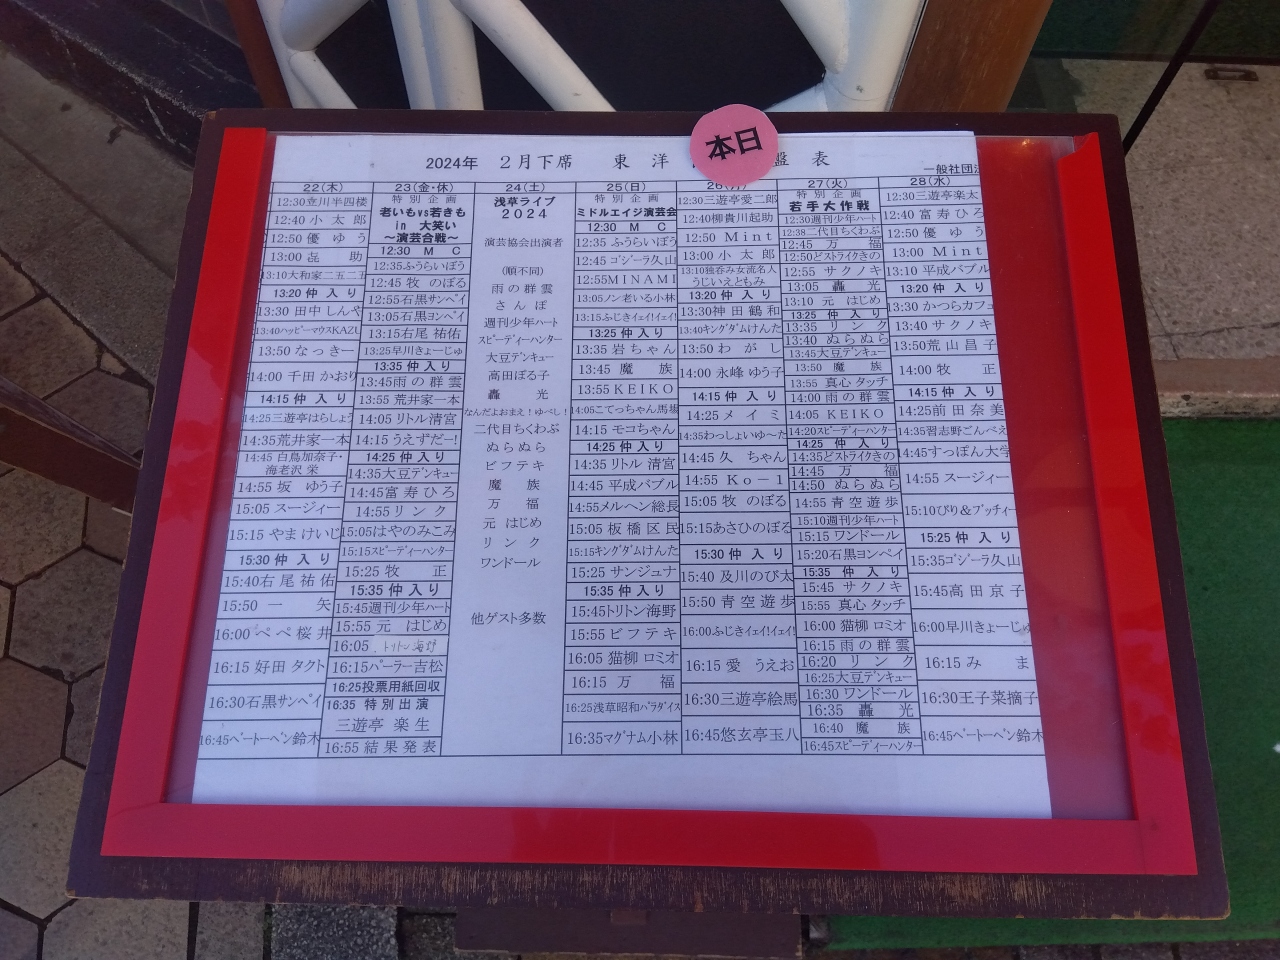 本日
2024年 2月下席 東 洋 盤 表
一般社団法
22(木)
12:30立川半四楼
12:40 小 太 郎
12:50 優 ゆ う
13:00 㐂 助
13:10大和家二五二五
13:20 仲 入 り
13:30 田中 しんや
13:40ハッピーマウスKAZU
13:50 な っ き ー
14:00 千田 かおり
14:15 仲 入 り
14:25三遊亭はらしょう
14:35荒井家一本
14:45 白鳥加奈子・
海老沢 栄
14:55 坂 ゆう子
15:05 スージィー
15:15 やま けいじ
15:30 仲 入 り
15:40右 尾 祐 佑
15:50 一 矢
16:00 ペペ桜井
16:15 好田 タクト
16:30石黒サンペイ
16:45ベートーベン鈴木
23(金・休)
特 別 企 画
老いもvs若きも
in 大笑い
～演芸合戦～
12:30 M C
12:35ふうらいぼう
12:45 牧 のぼる
12:55石黒サンペイ
13:05石黒ヨンペイ
13:15右尾 祐佑
13:25早川きょーじゅ
13:35 仲 入 り
13:45雨 の 群 雲
13:55 荒井家一本
14:05 リトル 清宮
14:15 うえずだー!
14:25 仲 入 り
14:35大豆デンキュー
14:45富 寿 ひ ろ
14:55 リ ン ク
15:05はやのみこみ
15:15スピーディーハンター
15:25 牧 正
15:35 仲 入 り
15:45週刊少年ハート
15:55 元 はじめ
16:05 トリトン海野
16:15パーラー吉松
16:25投票用紙回収
16:35 特 別 出 演
三遊亭 楽 生
16:55 結 果 発 表
24(土)
浅草ライブ
2024
演芸協会出演者
(順不同)
雨 の 群 雲
さ ん ぽ
週刊少年ハート
スピーディーハンター
大豆デンキュー
高田ぽる子
轟 光
なんだよおまえ!ゆべし!
二代目ちくわぶ
ぬ ら ぬ ら
ビ フ テ キ
魔 族
万 福
元 はじめ
リ ン ク
ワンドール
他ゲスト多数
25(日)
特 別 企 画
ミドルエイジ演芸会
12:30 M C
12:35 ふうらいぼう
12:45 ゴジーラ久山
12:55MINAMI
13:05ノン老いる小林
13:15ふじきイェイ!イェイ!
13:25 仲 入 り
13:35 岩 ち ゃ ん
13:45 魔 族
13:55 KEIKO
14:05こてっちゃん馬場
14:15 モコちゃん
14:25 仲 入 り
14:35 リトル 清宮
14:45 平成バブル
14:55メルヘン総長
15:05 板 橋 区 民
15:15キングダムけんた
15:25 サンジュナ
15:35 仲 入 り
15:45トリトン海野
15:55 ビ フ テ キ
16:05 猫柳 ロミオ
16:15 万 福
16:25浅草昭和パラダイス
16:35マグナム小林
26(月)
12:30三遊亭愛二郎
12:40柳貴川起助
12:50 Mint
13:00 小 太 郎
13:10独呑み女流名人
うじいえともみ
13:20 仲 入 り
13:30神 田 鶴 和
13:40キングダムけんた
13:50 わ が し
14:00 永峰 ゆう子
14:15 仲 入 り
14:25 メ イ ミ
14:35わっしょいゆーた
14:45 久 ちゃん
14:55 Ko－1
15:05 牧 のぼる
15:15あさひのぼる
15:30 仲 入 り
15:40 及川のび太
15:50 青 空 遊 歩
16:00ふじきイェイ!イェイ!
16:15 愛 うえお
16:30三遊亭絵馬
16:45悠玄亭玉八
27(火)
特 別 企 画
若手大作戦
12:30週刊少年ハート
12:38二代目ちくわぶ
12:45 万 福
12:50どストライクきの
12:55 サクノキ
13:05 轟 光
13:10 元 はじめ
13:25 仲 入 り
13:35 リ ン ク
13:40 ぬ ら ぬ ら
13:45大豆デンキュー
13:50 魔 族
13:55 真心 タッチ
14:00 雨 の 群 雲
14:05 KEIKO
14:20スピーディーハンター
14:25 仲 入 り
14:35どストライクきの
14:45 万 福
14:50 ぬ ら ぬ ら
14:55 青 空 遊 歩
15:10週刊少年ハート
15:15 ワンドール
15:20石黒ヨンペイ
15:35 仲 入 り
15:45 サクノキ
15:55 真心 タッチ
16:00 猫柳 ロミオ
16:15 雨 の 群 雲
16:20 リ ン ク
16:25大豆デンキュー
16:30 ワンドール
16:35 轟 光
16:40 魔 族
16:45スピーディーハンター
28(水)
12:30三遊亭楽太
12:40 富 寿 ひ ろ
12:50 優 ゆ う
13:00 Mint
13:10 平成バブル
13:20 仲 入 り
13:30 かつらカフェ
13:40 サクノキ
13:50荒 山 昌 子
14:00 牧 正
14:15 仲 入 り
14:25前 田 奈 美
14:35習志野ごんべえ
14:45すっぽん大学
14:55 スージィー
15:10ぴり&プッチィー
15:25 仲 入 り
15:35ゴジーラ久山
15:45高 田 京 子
16:00早川きょーじゅ
16:15 み ま
16:30王子菜摘子
16:45ベートーベン鈴木